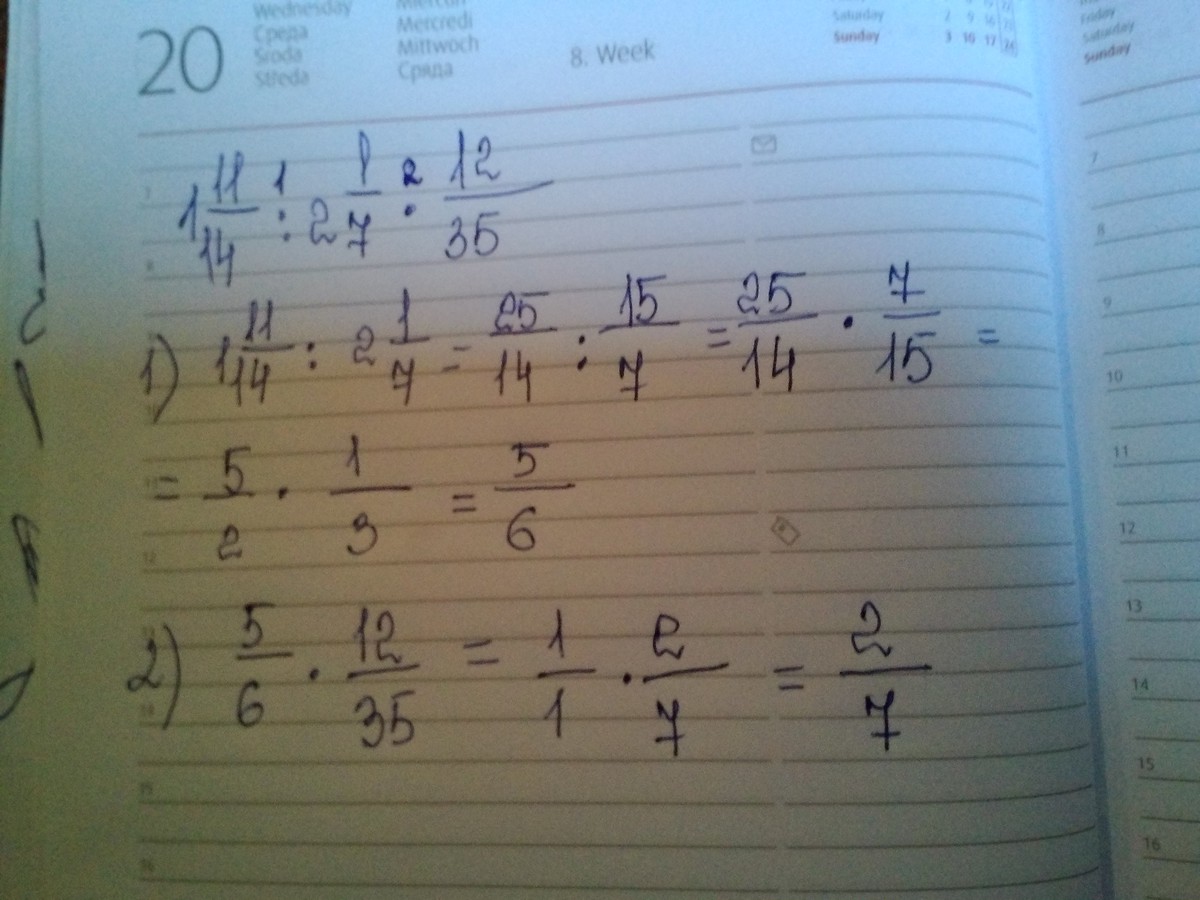 20
Wednesday
Среда
Środa
Středa
Miércoles
Mercredi
Mittwoch
Сряда
8. Week
Saturday 2 9 16 23
Sunday 3 10 17 24
Friday
Saturday
Sunday
1 11/14 :¹ 2 1/7 ·² 12/35
1) 1 11/14 : 2 1/7 = 25/14 : 15/7 = 25/14 · 7/15 =
= 5/2 · 1/3 = 5/6
2) 5/6 · 12/35 = 1/1 · 2/7 = 2/7
7
8
9
10
11
12
13
14
15
16